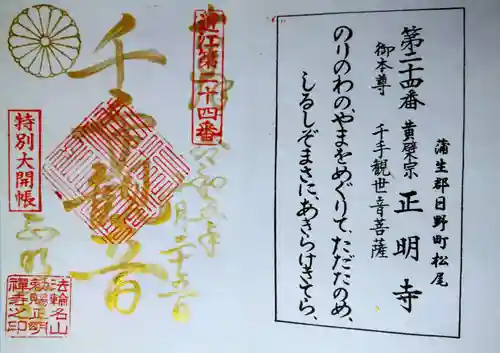 蒲生郡日野町松尾
第二十四番 黄檗宗 正明寺
御本尊 千手観世音菩薩
のりのわの、やまをめぐりて、たゞだのめ、
しるしぞまさに、あきらけきてら、
近江第二十四番
千手観音
特別大開帳
正明寺
法輪名山
勅賜正明
禅寺之印